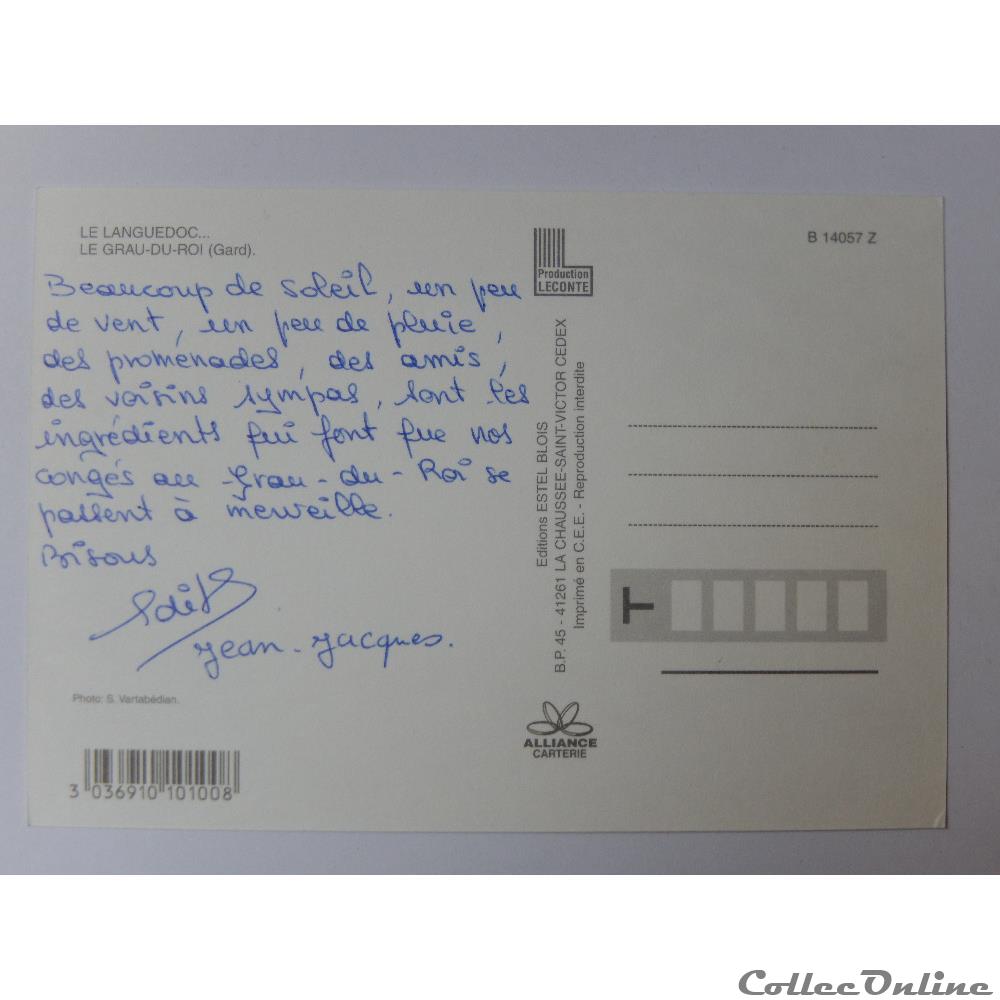 LE LANGUEDOC...
LE GRAU-DU-ROI (Gard).
Beaucoup de soleil, un peu
de vent, un peu de pluie,
des promenades, des amis,
des voisins sympas, sont les
ingrédients qui font que nos
congés au Grau-du-Roi se
passent à merveille.
Bisous
Edith
Jean-Jacques.
Photo: S. Vartabédian.
3 036910 101008
Production
LECONTE
Editions ESTEL BLOIS
B.P. 45 - 41261 LA CHAUSSEE-SAINT-VICTOR CEDEX
Imprimé en C.E.E. - Reproduction interdite
ALLIANCE
CARTERIE
B 14057 Z
T
CollecOnline